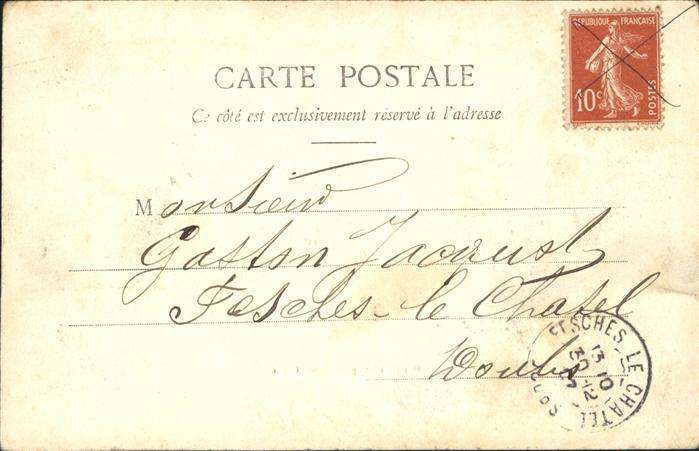 RÉPUBLIQUE FRANÇAISE
10c POSTES
CARTE POSTALE
Ce côté est exclusivement réservé à l'adresse
Monsieur
Gaston
Fesches-le Chatel
Doubs
FESCHES-LE-CHATEL
13 10
30-12
DOUBS